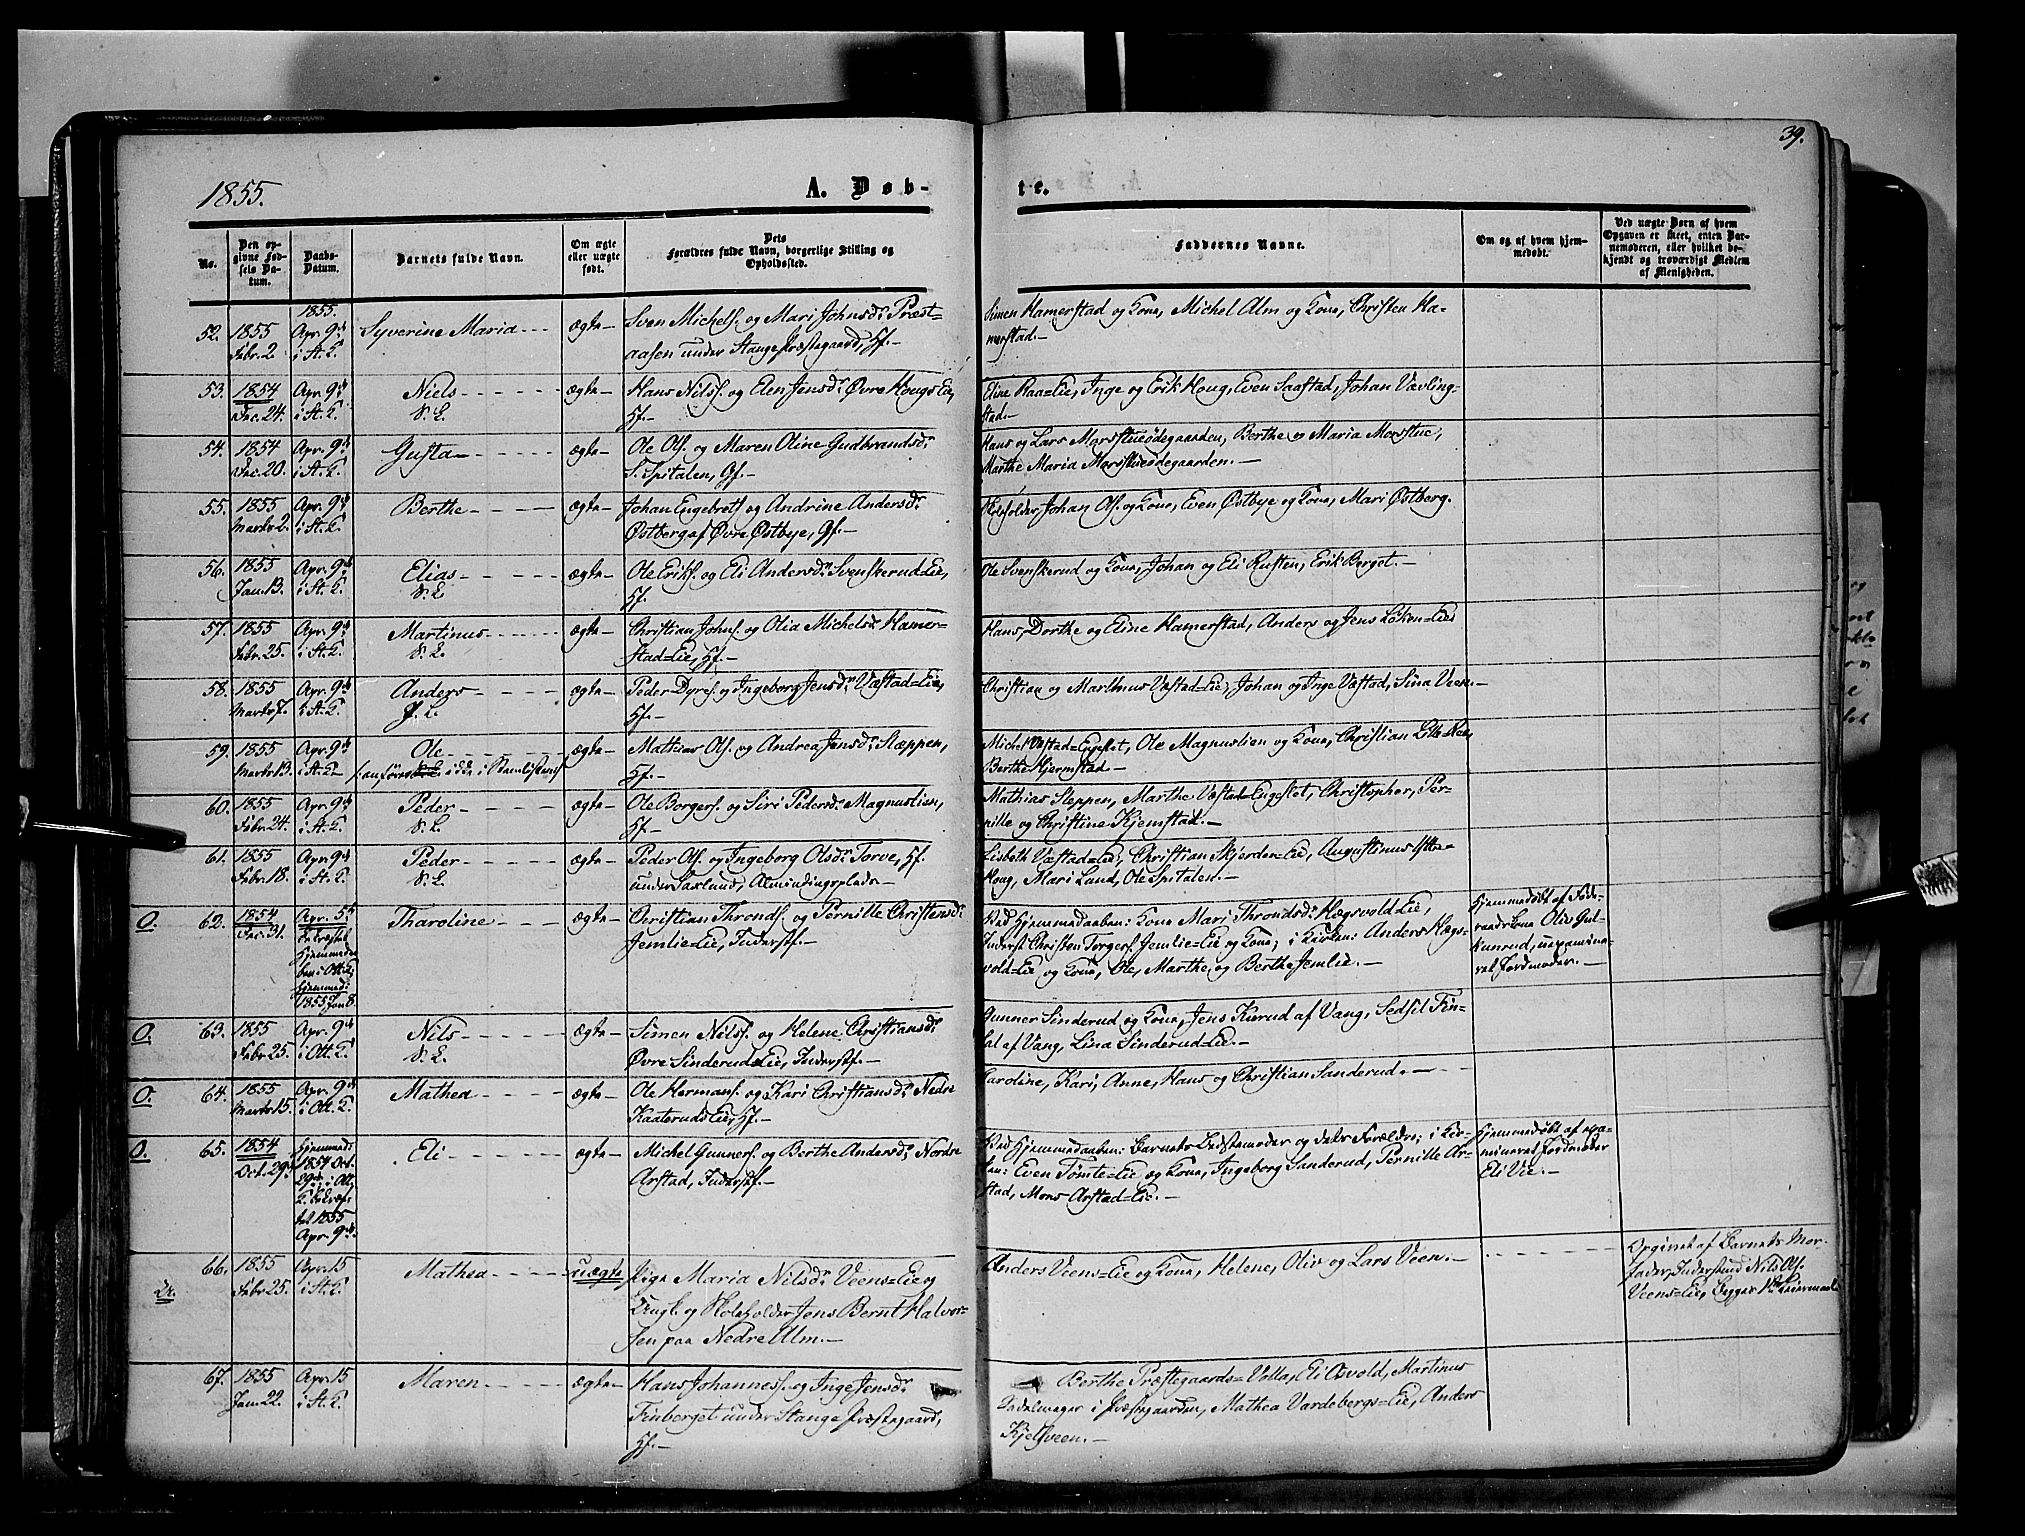 39.
1855.
A. Døb-
te.
No.
Den op-
givne Fød-
sels Da-
tum.
Daabs-
Datum.
Barnets fulde Navn.
Om ægte
eller uægte
født.
Dets
Forældres fulde Navn, borgerlige Stilling og
Opholdssted.
Faddernes Navne.
Om og af hvem hjem-
medøbt.
Ved uægte Børn af hvem
Opgaven er skeet, enten Bar-
nemoderen, eller hvilket be-
kjendt og troværdigt Medlem
af Menigheden.
52. 1855 Febr. 2
1855. Apr. 9de i St. K.
Syverine Maria
ægte
Sven Michels. og Mari Johnsdr. Præst-
aasen under Stange Præstegaard, Hf.
Simen Hamerstad og Kone, Michel Alm og Kone, Christen Ha-
merstad.
53. 1854 Dec. 24.
Apr. 9de i St. K.
Niels
ægte
Hans Nils. og Elen Jensdr. Øvre Hougs Eie,
Hf.
Eline Raa=Eie, Inge og Erik Houg, Even Saastad, Johan Vævling-
stad.
54. 1854 Dec. 20.
Apr. 9de i St. K.
Gusta
ægte
Ole Ols. og Maren Oline Gudbrandsdr.
Spitalen, Gf.
Hans og Lars Morstueødegaarden, Berthe og Maria Morstue,
Marthe Maria Morstueødegaarden.
55. 1855 Marts 2.
Apr. 9de i St. K.
Berthe
ægte
Johan Engebrets. og Andrine Andersdr.
Østberg af Øvre Østbye, Gf.
Johan Ols. og Kone, Even Østbye og Kone, Mari Østberg.
56. 1855 Jan. 13.
Apr. 9de i St. K.
Elias
ægte
Ole Eriks. og Eli Andersdr. Svenskerud=Eie,
Hf.
Ole Svenskerud og Kone, Johan og Eli Rusten, Erik Berget.
57. 1855 Febr. 25.
Apr. 9de i St. K.
Martinus
ægte
Christian Johns. og Olia Michelsdr. Hamer-
stad=Eie, Hf.
Hans, Dorthe og Eline Hamerstad, Anders og Jens Løken=Eie
58. 1855 Marts 7.
Apr. 9de i St. K.
Anders
ægte
Peder Dyres. og Ingeborg Jensdr. Væstad=Eie,
Hf.
Christian og Marthnus Væstad=Eie, Johan og Inge Væstad, Sina Veen.
59. 1855 Marts 13.
Apr. 9de i St. K.
Ole
ægte
Mathias Ols. og Andrea Jensdr. Steppen,
Hf.
Michel Væstad=Engestet, Ole Magnuslien og Kone, Christian
Berthe Hjermstad
60. 1855 Febr. 24.
Apr. 9de i St. K.
Peder
ægte
Ole Borgers. og Siri Pedersdr. Magnuslien,
Hf.
Mathias Steppen, Marthe Væstad=Engestet, Christopher, Per-
nille og Christine Kjemstad.
61. 1855 Febr. 18.
Apr. 9de i St. K.
Peder
ægte
Peder Ols. og Ingeborg Olsdr. Torve, Hf.
under Saxlund, Almindingsplads
Lisbeth Væstad=Eie, Christian Skjerden=Eie, Augustinus
Houg, Mari Lund, Ole Spitalen.
O. 62. 1854 Dec. 31.
Apr. 5te
Hjemmeda-
ben i Ott. K.
hjemmed:
1855 Jan. 8.
Tharoline
ægte
Christian Thronds. og Pernille Christensdr.
Jemlie=Eie, Inderstf.
Ved Hjemmedaaben: Kone Mari Throndsdr. Hægsvold=Eie,
Inderst Christen Torgers. Jemlie=Eie og Kone; i Kirken: Anders Hægs-
vold=Eie og Kone, Ole, Marthe og Berthe Jemlie.
Hjemmedøbt af Føde-
raadskone Oliv Gul-
kunrud, uexamine-
ret Jordmoder.
O. 63. 1855 Febr. 25.
Apr. 9de i Ott. K.
Nils
ægte
Simen Nils. og Helene Christiansdr.
Øvre Sinderud=Eie, Inderstf.
Gunner Sinderud og Kone, Jens Kurud af Vang, Sedsil Fin-
af Vang, Lina Sinderud=Eie.
O. 64. 1855 Marts 15.
Apr. 9de i Ott. K.
Mathea
ægte
Ole Hermans. og Kari Christiansdr. Nedre
Kaaterud=Eie, Hf.
Caroline, Kari, Anne, Hans og Christian Sanderud.
O. 65. 1854 Oct. 29.
Hjemmed:
1854 Oct.
29de, i Ott.
K. bekræf-
tet 1855
Apr. 9de.
Eli
ægte
Michel Gunners. og Berthe Andersdr. Nordre
Arstad, Inderstf.
Ved Hjemmedaaben: Barnets Bedstemoder og dets Forældre; i Kir-
ken: Even Tømte=Eie og Kone, Ingeborg Sanderud, Pernille Ar-
stad, Mons Arstad=Eie.
Hjemmedøbt af exa-
mineret Jordmoder
Eli Vie.
66. 1855 Febr. 25.
Apr. 15 i St. K.
Mathea
uægte
Pige Maria Nilsdr. Veens=Eie og
Ungk. og Skoleholder Jens Bernt Halvor-
sen paa Nedre Alm.
Anders Veens=Eie og Kone, Helene, Oliv og Lars Veen.
Opgivet af Barnets Mor-
fader, Inderstmd Nils Ols.
Veens=Eie, Begges
67. 1855 Jan. 22.
Apr. 15 i St. K.
Maren
ægte
Hans Johannes. og Inge Jensdr.
Finberget under Stange Præstegaard,
Hf.
Berthe Præstegaards=Volla, Eli Osvold, Martinus
Sadelmager i Præstegaarden, Mathea Vardebergs=Eie, Anders
Kjelsveen.